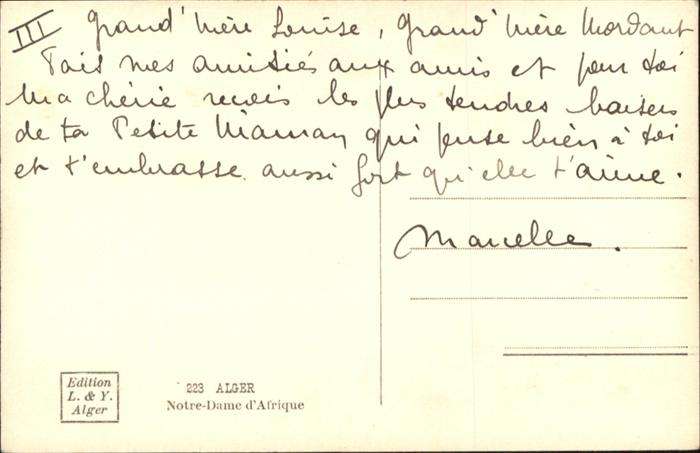 III Grand'Mère Louise, Grand'Mère Mordant
Fais mes amitiés aux amis et pour toi
Ma chérie reçois les plus tendres baisers
de ta Petite Maman qui pense bien à toi
et t'embrasse aussi fort qu'elle t'aime.
Marcelle.
Edition
L. & Y.
Alger
223 ALGER
Notre-Dame d'Afrique